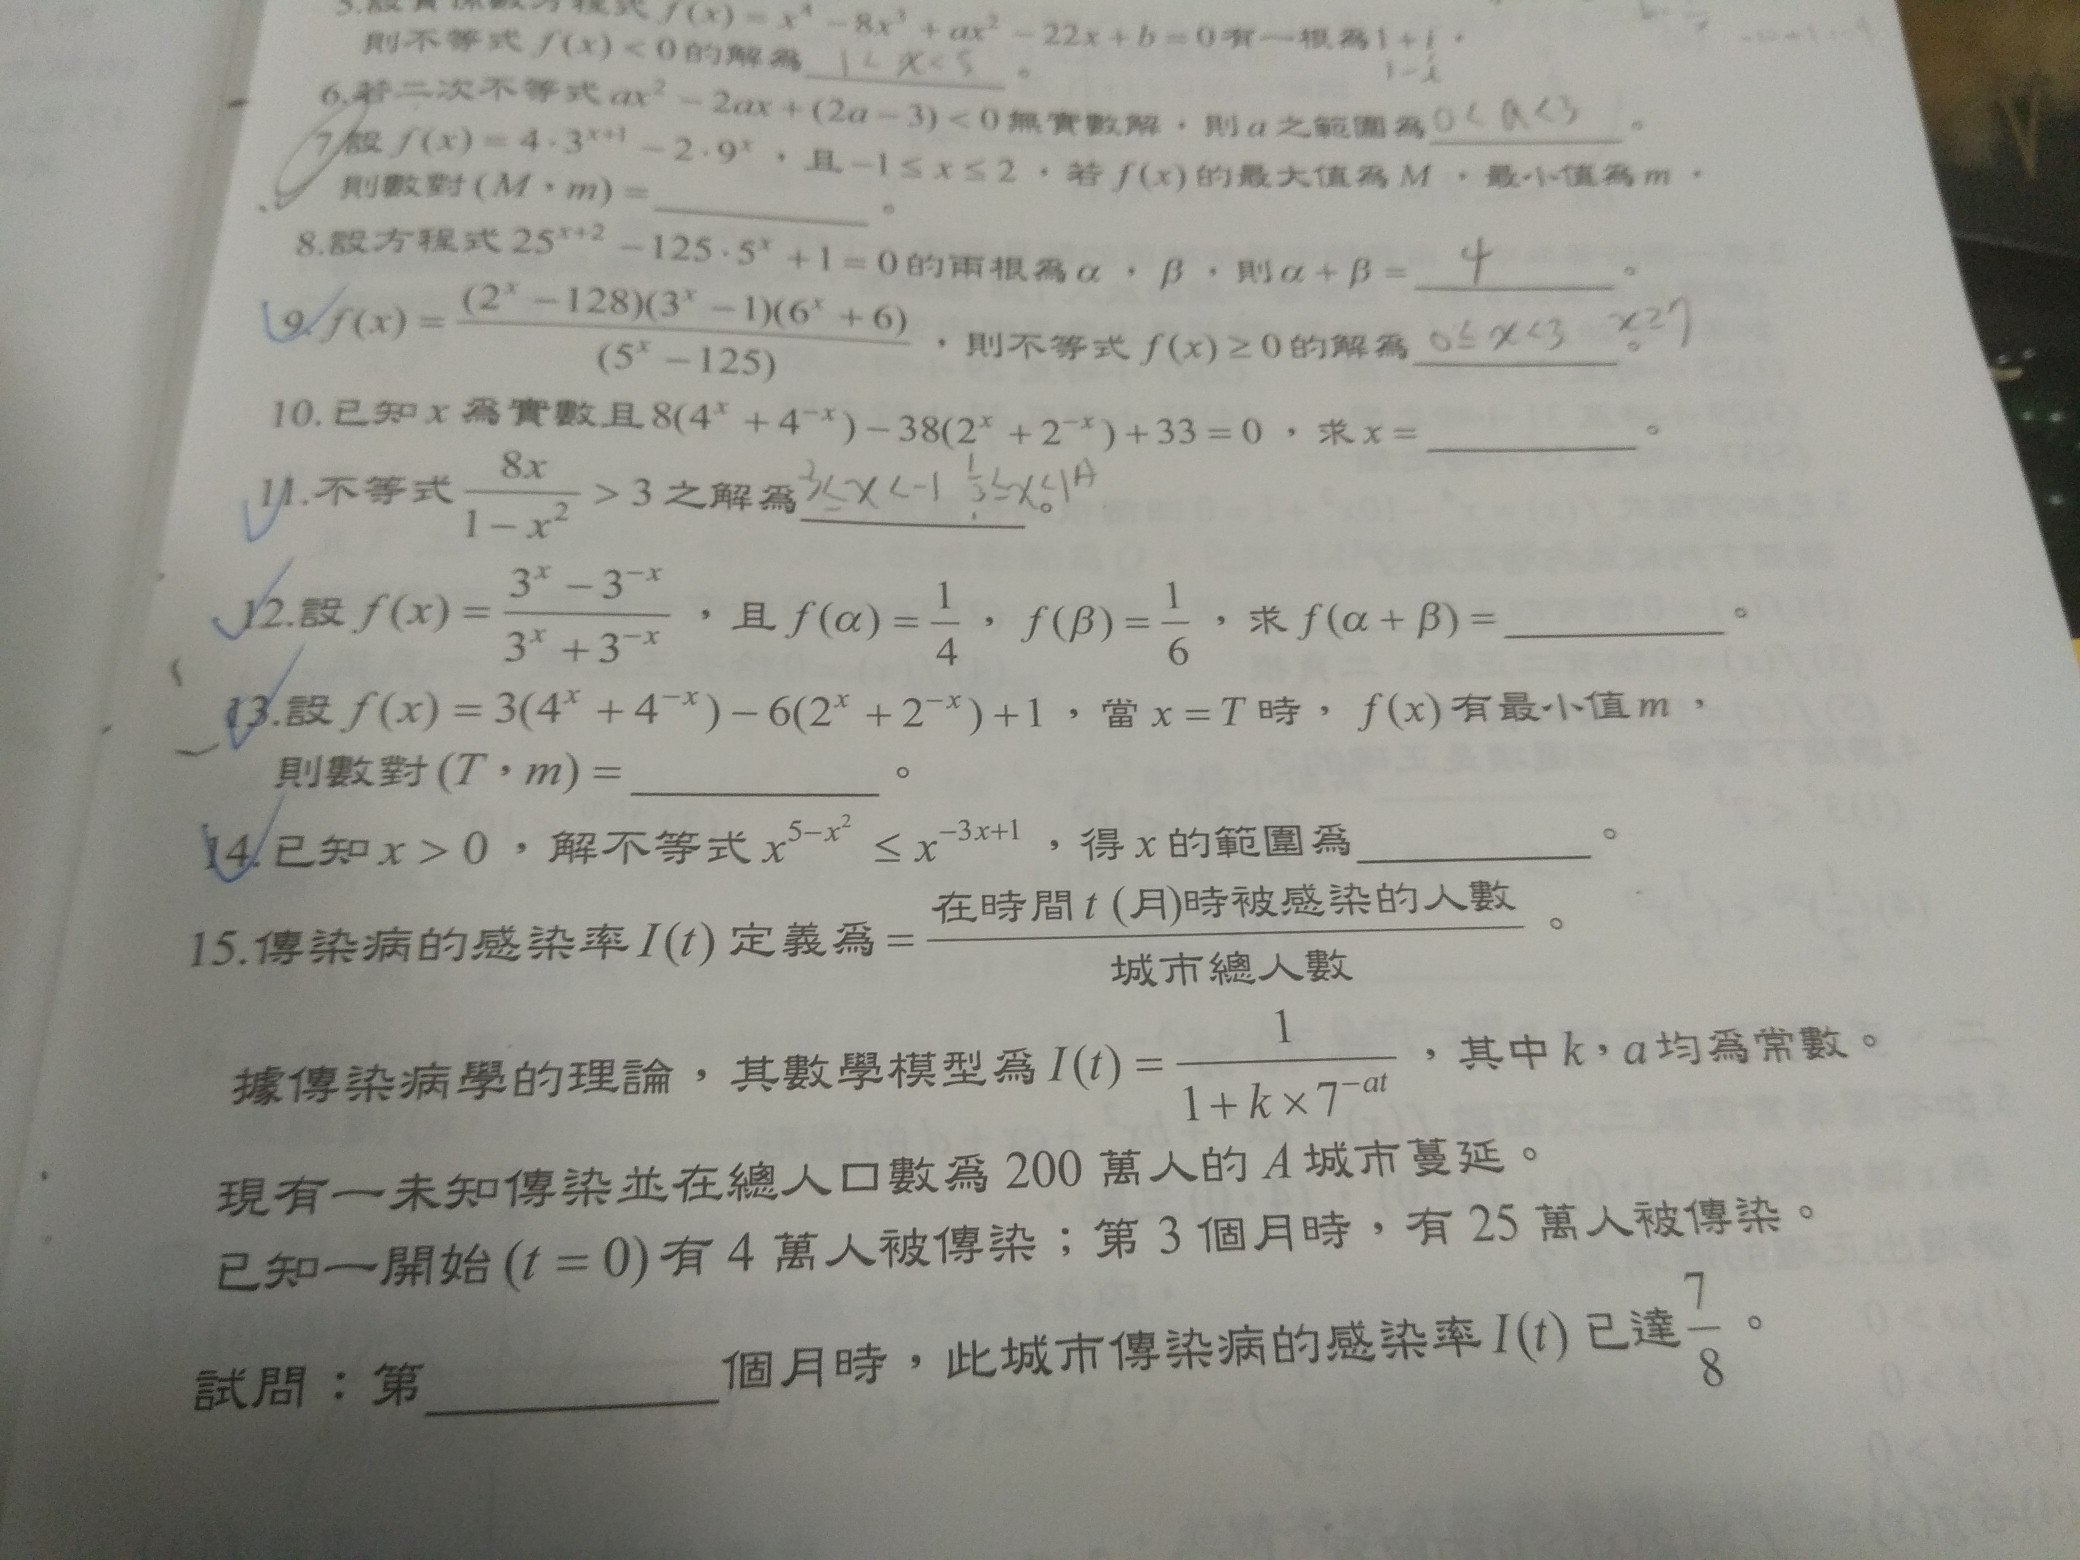 5.設實係數方程式 f(x) = x⁴ − 8x³ + ax² − 22x + b = 0有一根為1+i，
1−i
則不等式 f(x) < 0的解為 1 < x < 5 。
6.若二次不等式 ax² − 2ax + (2a − 3) < 0無實數解，則a之範圍為 0 < a < 3 。
7.設 f(x) = 4·3ˣ⁺¹ − 2·9ˣ，且−1 ≤ x ≤ 2，若 f(x)的最大值為M，最小值為m，
則數對(M，m) = ______。
8.設方程式 25ˣ⁺² − 125·5ˣ + 1 = 0的兩根為α，β，則α + β = 4 。
9. f(x) = (2ˣ − 128)(3ˣ − 1)(6ˣ + 6) / (5ˣ − 125)，則不等式 f(x) ≥ 0的解為 0 ≤ x < 3 x ≥ 7 。
10.已知x為實數且8(4ˣ + 4⁻ˣ) − 38(2ˣ + 2⁻ˣ) + 33 = 0，求x = ______。
11.不等式 8x / (1 − x²) > 3之解為 < x < −1 。
12.設 f(x) = (3ˣ − 3⁻ˣ) / (3ˣ + 3⁻ˣ)，且 f(α) = 1/4，f(β) = 1/6，求 f(α + β) = ______。
13.設 f(x) = 3(4ˣ + 4⁻ˣ) − 6(2ˣ + 2⁻ˣ) + 1，當x = T時，f(x)有最小值m，
則數對(T，m) = ______。
14.已知x > 0，解不等式 x^(5−x²) ≤ x^(−3x+1)，得x的範圍為______。
15.傳染病的感染率I(t)定義為 = 在時間t (月)時被感染的人數 / 城市總人數。
據傳染病學的理論，其數學模型為I(t) = 1 / (1 + k × 7^(−at))，其中k，a均為常數。
現有一未知傳染並在總人口數為 200 萬人的 A 城市蔓延。
已知一開始(t = 0)有 4 萬人被傳染；第 3 個月時，有 25 萬人被傳染。
試問：第______個月時，此城市傳染病的感染率I(t)已達7/8。